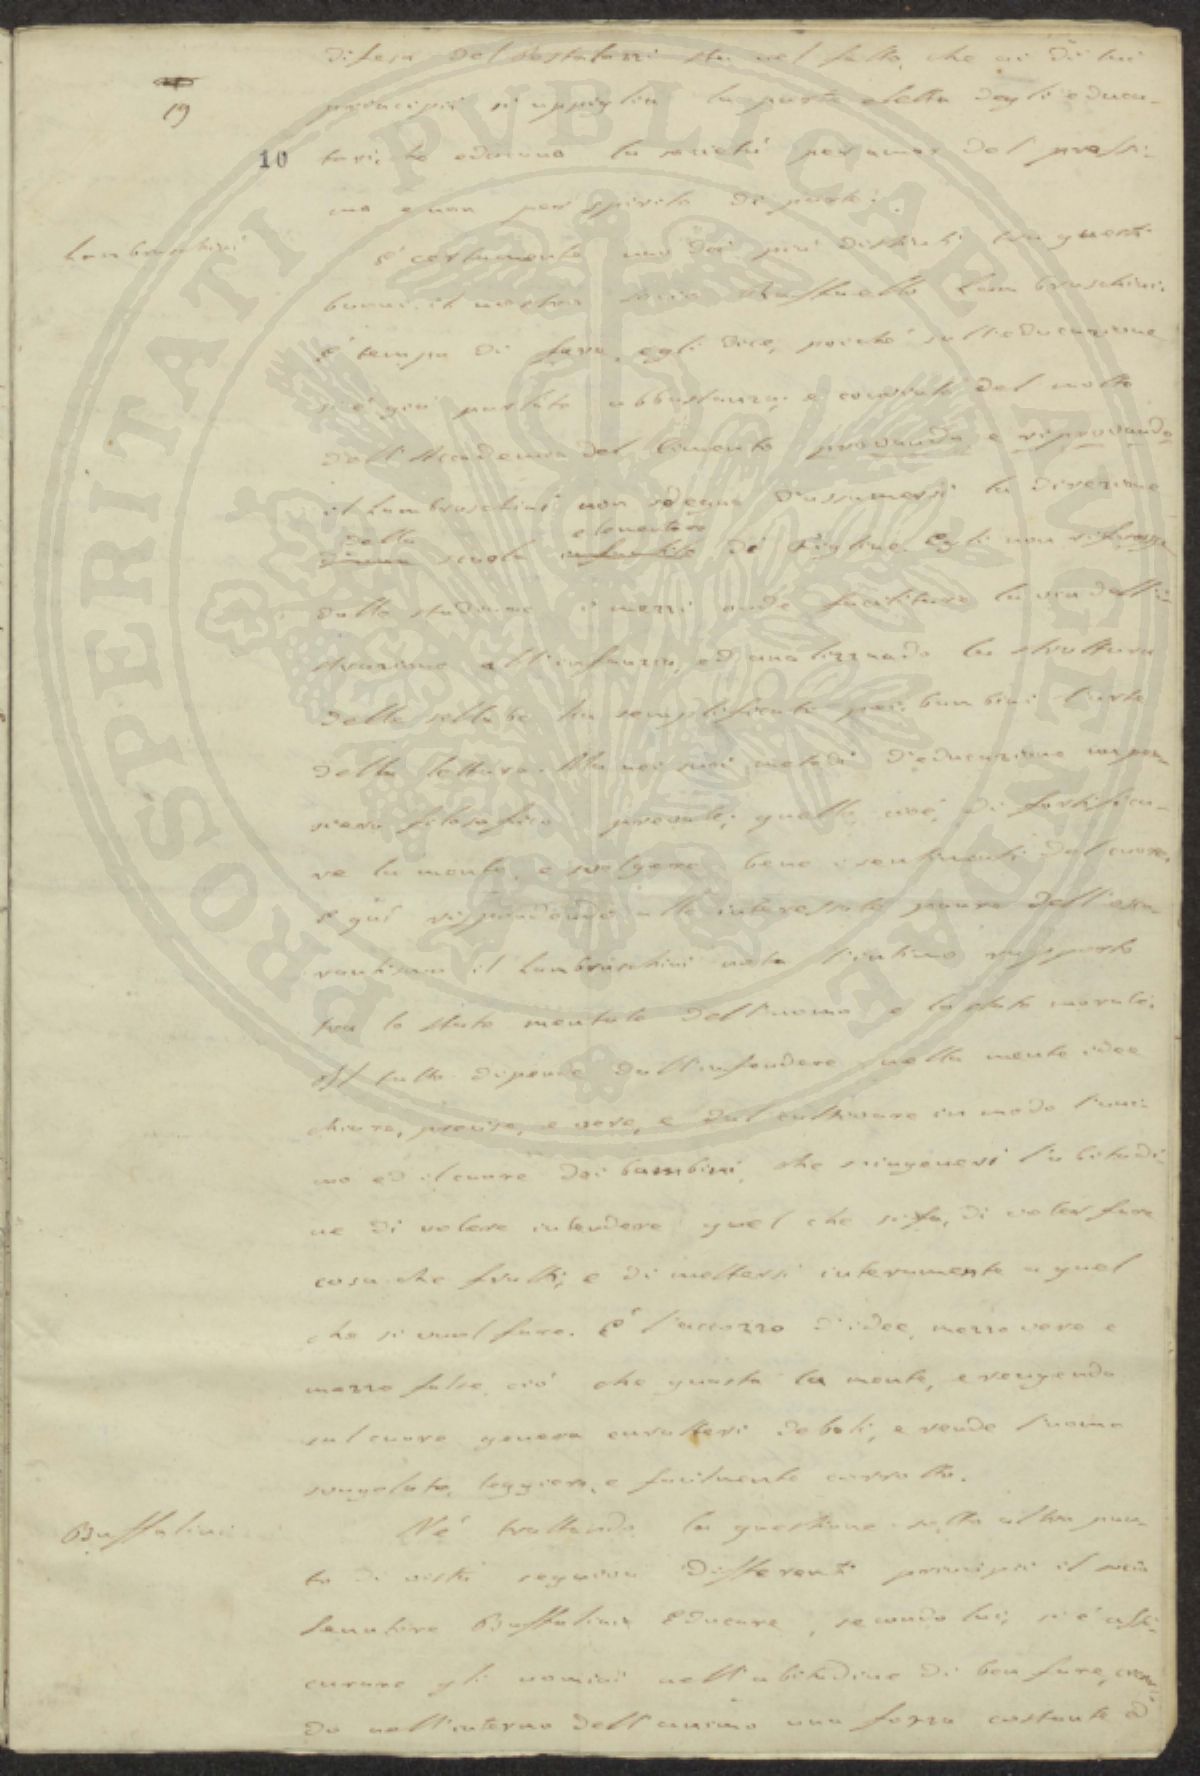 difesa del Pestalozzi sta nel fatto, che ai di lui
19
principii si appiglia la parte eletta degli educa-
10
tori, che educano la società per amor del prossi-
mo e non per spirito di parte.
Lambruschini
È certamente uno dei più distinti tra questi
buoni il nostro socio Raffaello Lambruschini.
È tempo di fare, egli dice, poiché sull'educazione
si è già parlato abbastanza; e del motto
dell'Accademia del Cimento provando e riprovando
il Lambruschini non sdegna d'assumersi la direzione
della elementare
scuola infantile di Figline. Egli non
dallo studiare i mezzi onde facilitare la via dell'i-
struzione all'infanzia, ed analizzando la struttura
delle sillabe ha semplificato pei bambini l'arte
della lettura. Ma nei suoi metodi d'educazione un pen-
siero filosofico prevale; quello, cioè, di fortifica-
re la mente, e svolgere bene i sentimenti del cuore.
E qui rispondendo alle interessate paure dell'oscu-
rantismo il Lambruschini nota l'intimo rapporto
tra lo stato mentale dell'uomo e lo stato morale.
Il tutto dipende dall'infondere nella mente idee
chiare, precise, e vere, e dal coltivare in modo l'ani-
mo ed il cuore dei bambini, che s'ingeneri l'abitudi-
ne di volere intendere quel che si fa, di voler fare
cosa che frutti; e di mettersi interamente a quel
che si vuol fare. È l'accozzo d'idee, mezzo vere e
mezzo false ciò che guasta la mente, e reagendo
sul cuore genera caratteri deboli, e rende l'uomo
svogliato, leggiero, e facilmente corrotto.
Buffalini
Né trattando la questione sotto altro pun-
to di vista seguiva differenti principii il socio
Senatore Buffalini. Educare, secondo lui, si è assi-
curare gli uomini nell'abitudine di ben fare, crean-
do nell'interno dell'animo una forza costante ed
PROSPERITATI PVBLICAE AVGENDAE